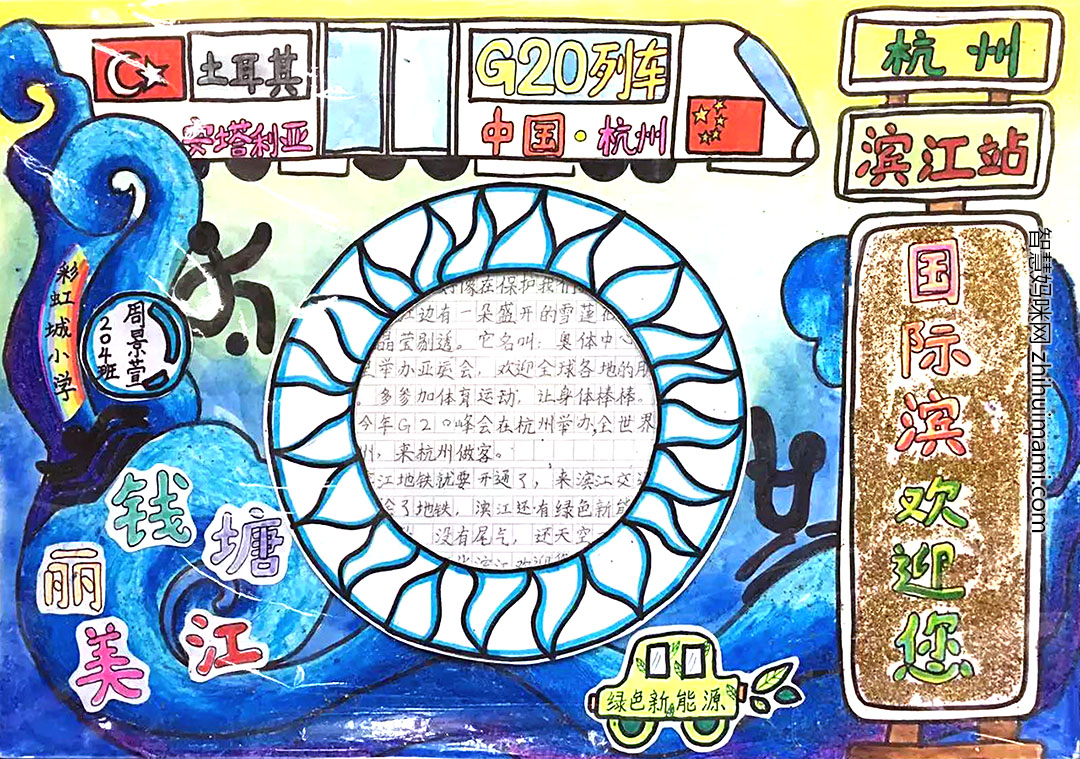 土耳其
G20列车
安塔利亚
中国·杭州
杭州
滨江站
国际滨欢迎您
智慧妈咪网 zhihuimami.com
彩虹城小学
周景萱
204班
像在保护我们
边有一朵盛开的雪莲
晶莹剔透。它名叫:奥体中心
举办亚运会,欢迎全球各地的朋
多参加体育运动,让身体棒棒。
今年G20峰会在杭州举办,全世界
州,来杭州做客。
江地铁就要开通了,来滨江交
了地铁,滨江还有绿色新能
没有尾气,还天空
滨江欢迎
美丽
钱塘江
绿色新能源